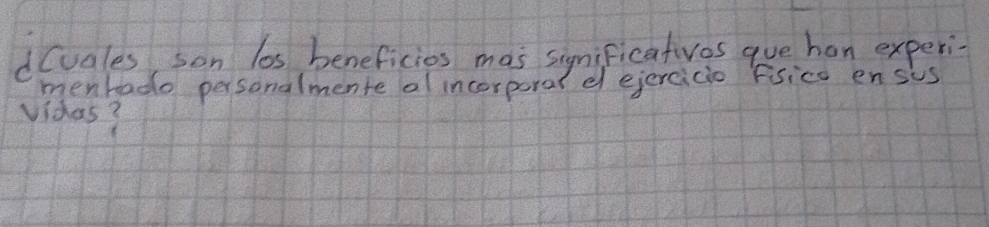 ¿Cuales son los beneficios mas significativos que han experi-
mentado personalmente al incorporar el ejercicio físico en sus
vidas?